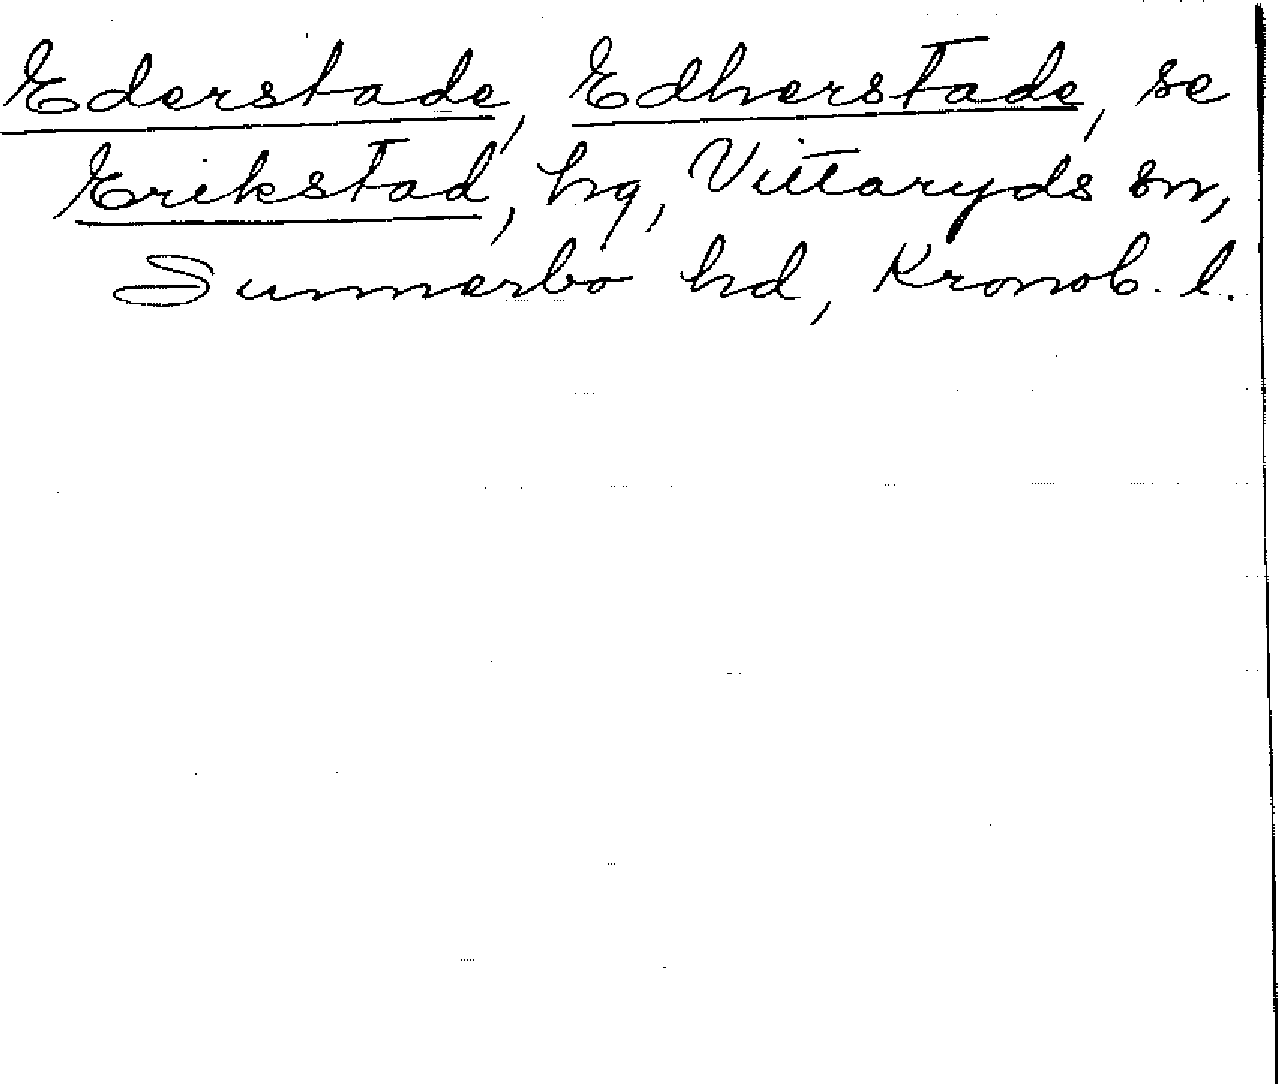 Ederstade, Edherstade, se
Erikstad, hg, Vittaryds sn,
Sunnerbo hd, Kronob. l.